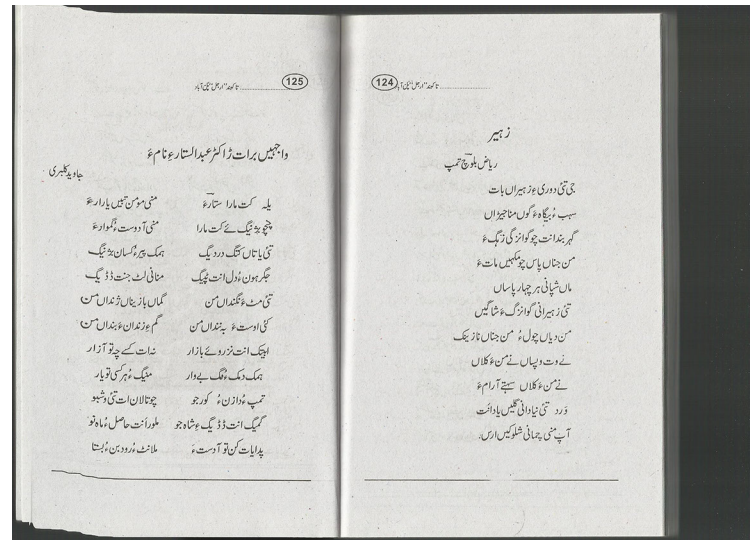 124
زہیر
ریاض بلوچ تمپ
جی تئی دوری ءِ زہیراں بات
سہب ءُ بیگاہ ءَ گوں مناجیزاں
گہر بندانت چو گوانزگی زہگ ءَ
من جناں پاس چو مکہیں مات ءَ
ماں شپانی ہر چہار پاساں
تئی زہیرانی گوانزگ ءَ شاگیں
من دیاں چول ءُ من جناں نازینک
نے وت وپساں نے من ءَ کلاں
نے من ءَ کلاں سہتے آرام ءَ
وَرد تئی نیادانی گلیں یاداَنت
آپ منی چمانی شلوکیں ارس.
125
واجہیں برات ڈاکٹر عبدالستار ءِ نام ءَ
جاوید کلبری
یلہ کت مارا ستار ءَ منی مومن تبیں یارا رءَ
چنچو بژنیگ ئے کت مارا منی آ دوست ءُ غموار ءَ
تئی یاتاں کتگ دردیگ ہمک پیر ءُ کسان بژنیگ
جگر ہون ءُ دل انت ٹپیگ منانی لٹ جنت ڈڈیگ
تئی مٹ ءَ نگنداں من گماں بازیناں ژنداں من
کئی اوست ءَ بہ نندان من گم ءِ زندان ءَ بنداں من
ابیتک انت نز روئے بازار نہ ات کسے چہ تو آزار
ہمک دمک ءُ مگ بے دار منیگ ءُ ہر کسی تو یار
تمپ ءُ دازن ءُ کور جو چو نالان ات تئی وشبو
گمیگ انت ڈڈیگ ءِ شاہ جو ملور اَنت حاصل ءُ ماہ نو
پدا یات کن تو آ دست ءَ ملانٹ ءُ رود بن ءُ بستا